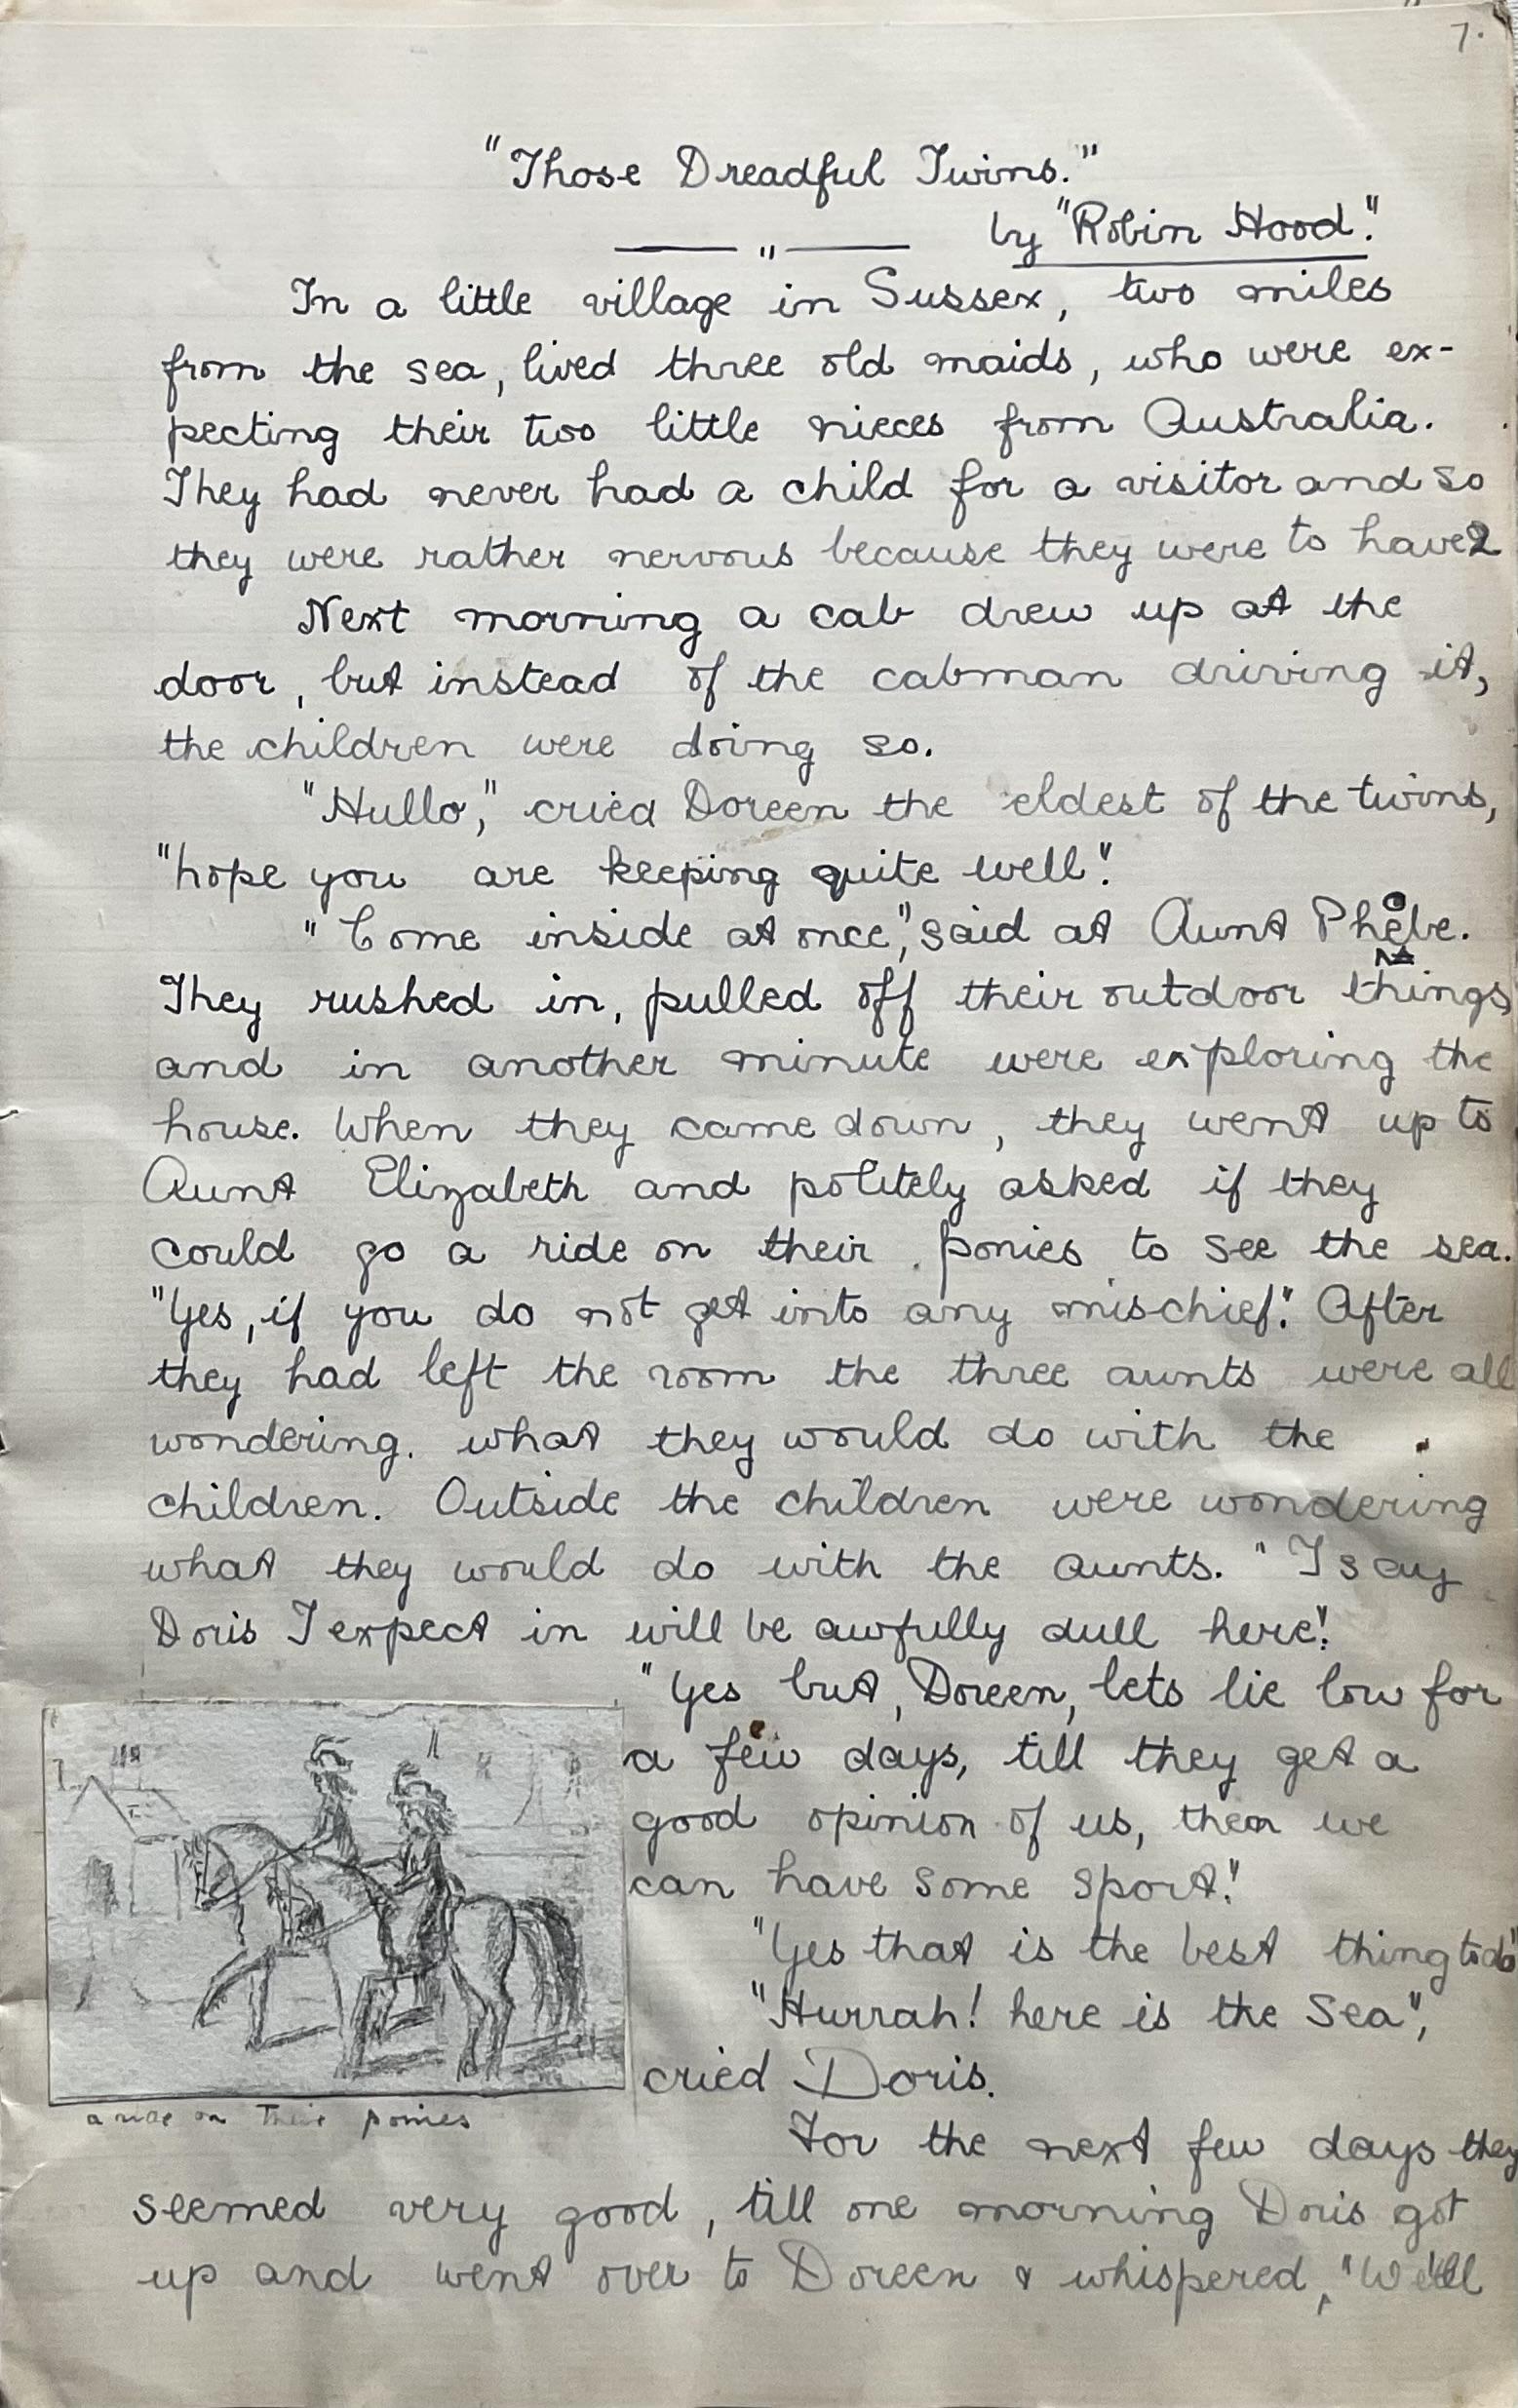 7.
"Those Dreadful Twins."
by "Robin Hood".
In a little village in Sussex, two miles
from the sea, lived three old maids, who were ex-
pecting their two little nieces from Australia.
They had never had a child for a visitor and so
they were rather nervous because they were to have 2
Next morning a cab drew up at the
door, but instead of the cabman driving it,
the children were doing so.
"Hullo," cried Doreen the eldest of the twins,
"hope you are keeping quite well".
"Come inside at once," said at Aunt Phoebe.
They rushed in, pulled off their outdoor things
and in another minute were exploring the
house. When they came down, they went up to
Aunt Elizabeth and politely asked if they
could go a ride on their ponies to see the sea.
"Yes, if you do not get into any mischief." After
they had left the room the three aunts were all
wondering. what they would do with the
children. Outside the children were wondering
what they would do with the aunts. "I say
Doris I expect in will be awfully dull here!"
"Yes but, Doreen, lets lie low for
a few days, till they get a
good opinion of us, then we
can have some sport."
"Yes that is the best thing to do"
"Hurrah! here is the Sea",
cried Doris.
a ride on their ponies
For the next few days they
seemed very good, till one morning Doris got
up and went over to Doreen & whispered, "We'll